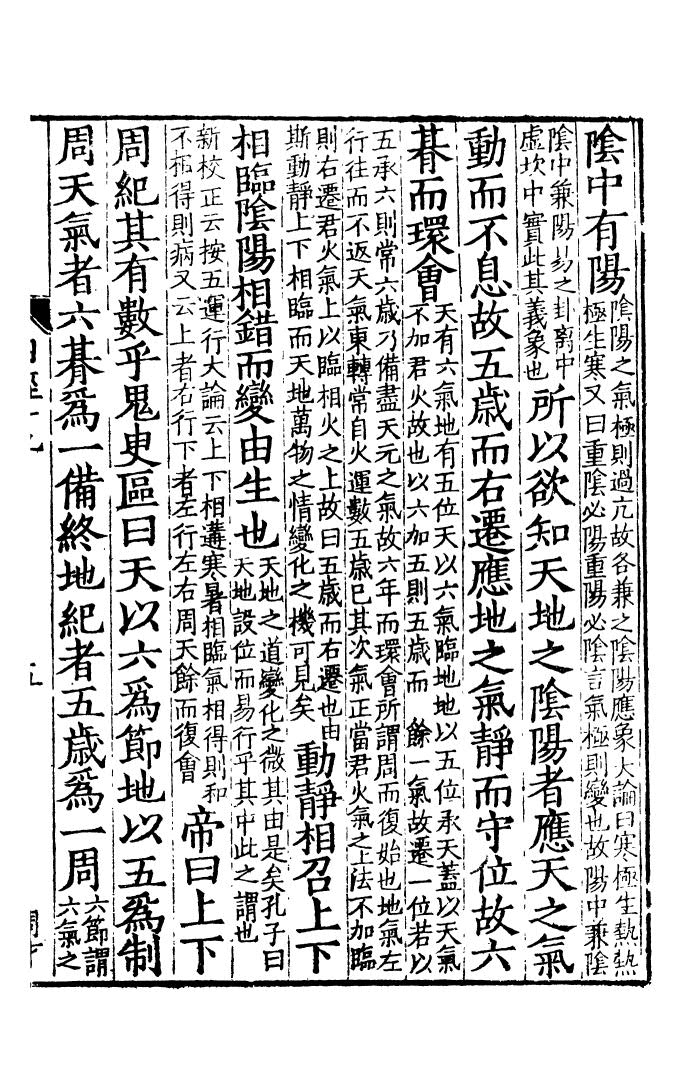 陰中有陽陰陽之氣極則過亢故各兼之陰陽應象大論曰寒極生熱熱極生寒又曰重陰必陽重陽必陰言氣極則變也故陽中兼陰
陰中兼陽易之卦离中虛坎中實此其義象也所以欲知天地之陰陽者應天之氣
動而不息故五歲而右遷應地之氣靜而守位故六
朞而環會天有六氣地有五位天以六氣臨地地以五位承天蓋以天氣不加君火故也以六加五則五歲而餘一氣故遷一位若以
五承六則常六歲乃備盡天元之氣故六年而環會所謂周而復始也地氣左行往而不返天氣東轉常自火運數五歲已其次氣正當君火氣之上法不加臨
則右遷君火氣上以臨相火之上故曰五歲而右遷也由斯動靜上下相臨而天地萬物之情變化之機可見矣動靜相召上下
相臨陰陽相錯而變由生也天地之道變化之微其由是矣孔子曰天地設位而易行乎其中此之謂也
新校正云按五運行大論云上下相遘寒暑相臨氣相得則和不相得則病又云上者右行下者左行左右周天餘而復會帝曰上下
周紀其有數乎鬼臾區曰天以六爲節地以五爲制
周天氣者六朞爲一備終地紀者五歲爲一周六節謂六氣之
五